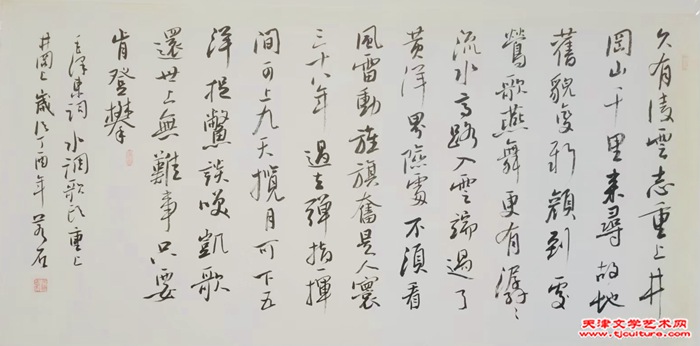 久有凌雲志重上井
岡山千里来尋故地
舊貌變新顔到處
鶯歌燕舞更有潺々
流水高路入雲端過了
黄洋界險處不須看
風雷動旌旗奮是人寰
三十八年過去彈指一揮
間可上九天攬月可下五
洋捉鱉談笑凱歌
還世上無難事只要
肯登攀
毛澤東詞水調歌頭重上
井岡山歲次丁酉年若石
天津文学艺术网
www.tjculture.com